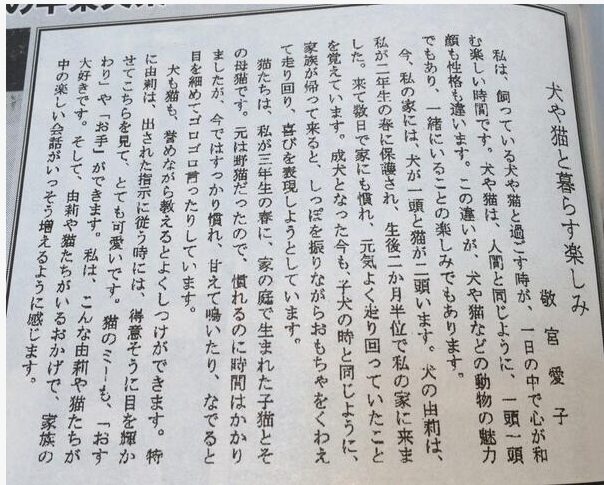 犬や猫と暮らす楽しみ
敬宮愛子
私は、飼っている犬や猫と過ごす時が、一日の中で心が和
む楽しい時間です。犬や猫は、人間と同じように、一頭一頭
顔も性格も違います。この違いが、犬や猫などの動物の魅力
でもあり、一緒にいることの楽しみでもあります。
今、私の家には、犬が一頭と猫が二頭います。犬の由莉は、
私が二年生の春に保護され、生後二か月半位で私の家に来ま
した。来て数日で家にも慣れ、元気よく走り回っていたこと
を覚えています。成犬となった今も、子犬の時と同じように、
家族が帰って来ると、しっぽを振りながらおもちゃをくわえ
て走り回り、喜びを表現しようとしています。
猫たちは、私が三年生の春に、家の庭で生まれた子猫とそ
の母猫です。元は野猫だったので、慣れるのに時間はかかり
ましたが、今ではすっかり慣れ、甘えて鳴いたり、なでると
目を細めてゴロゴロ言ったりしています。
犬も猫も、誉めながら教えるとよくしつけができます。特
に由莉は、出された指示に従う時には、得意そうに目を輝か
せてこちらを見て、とても可愛いです。猫のミーも、「おす
わり」や「お手」ができます。私は、こんな由莉や猫たちが
大好きです。そして、由莉や猫たちがいるおかげで、家族の
中の楽しい会話がいっそう増えるように感じます。